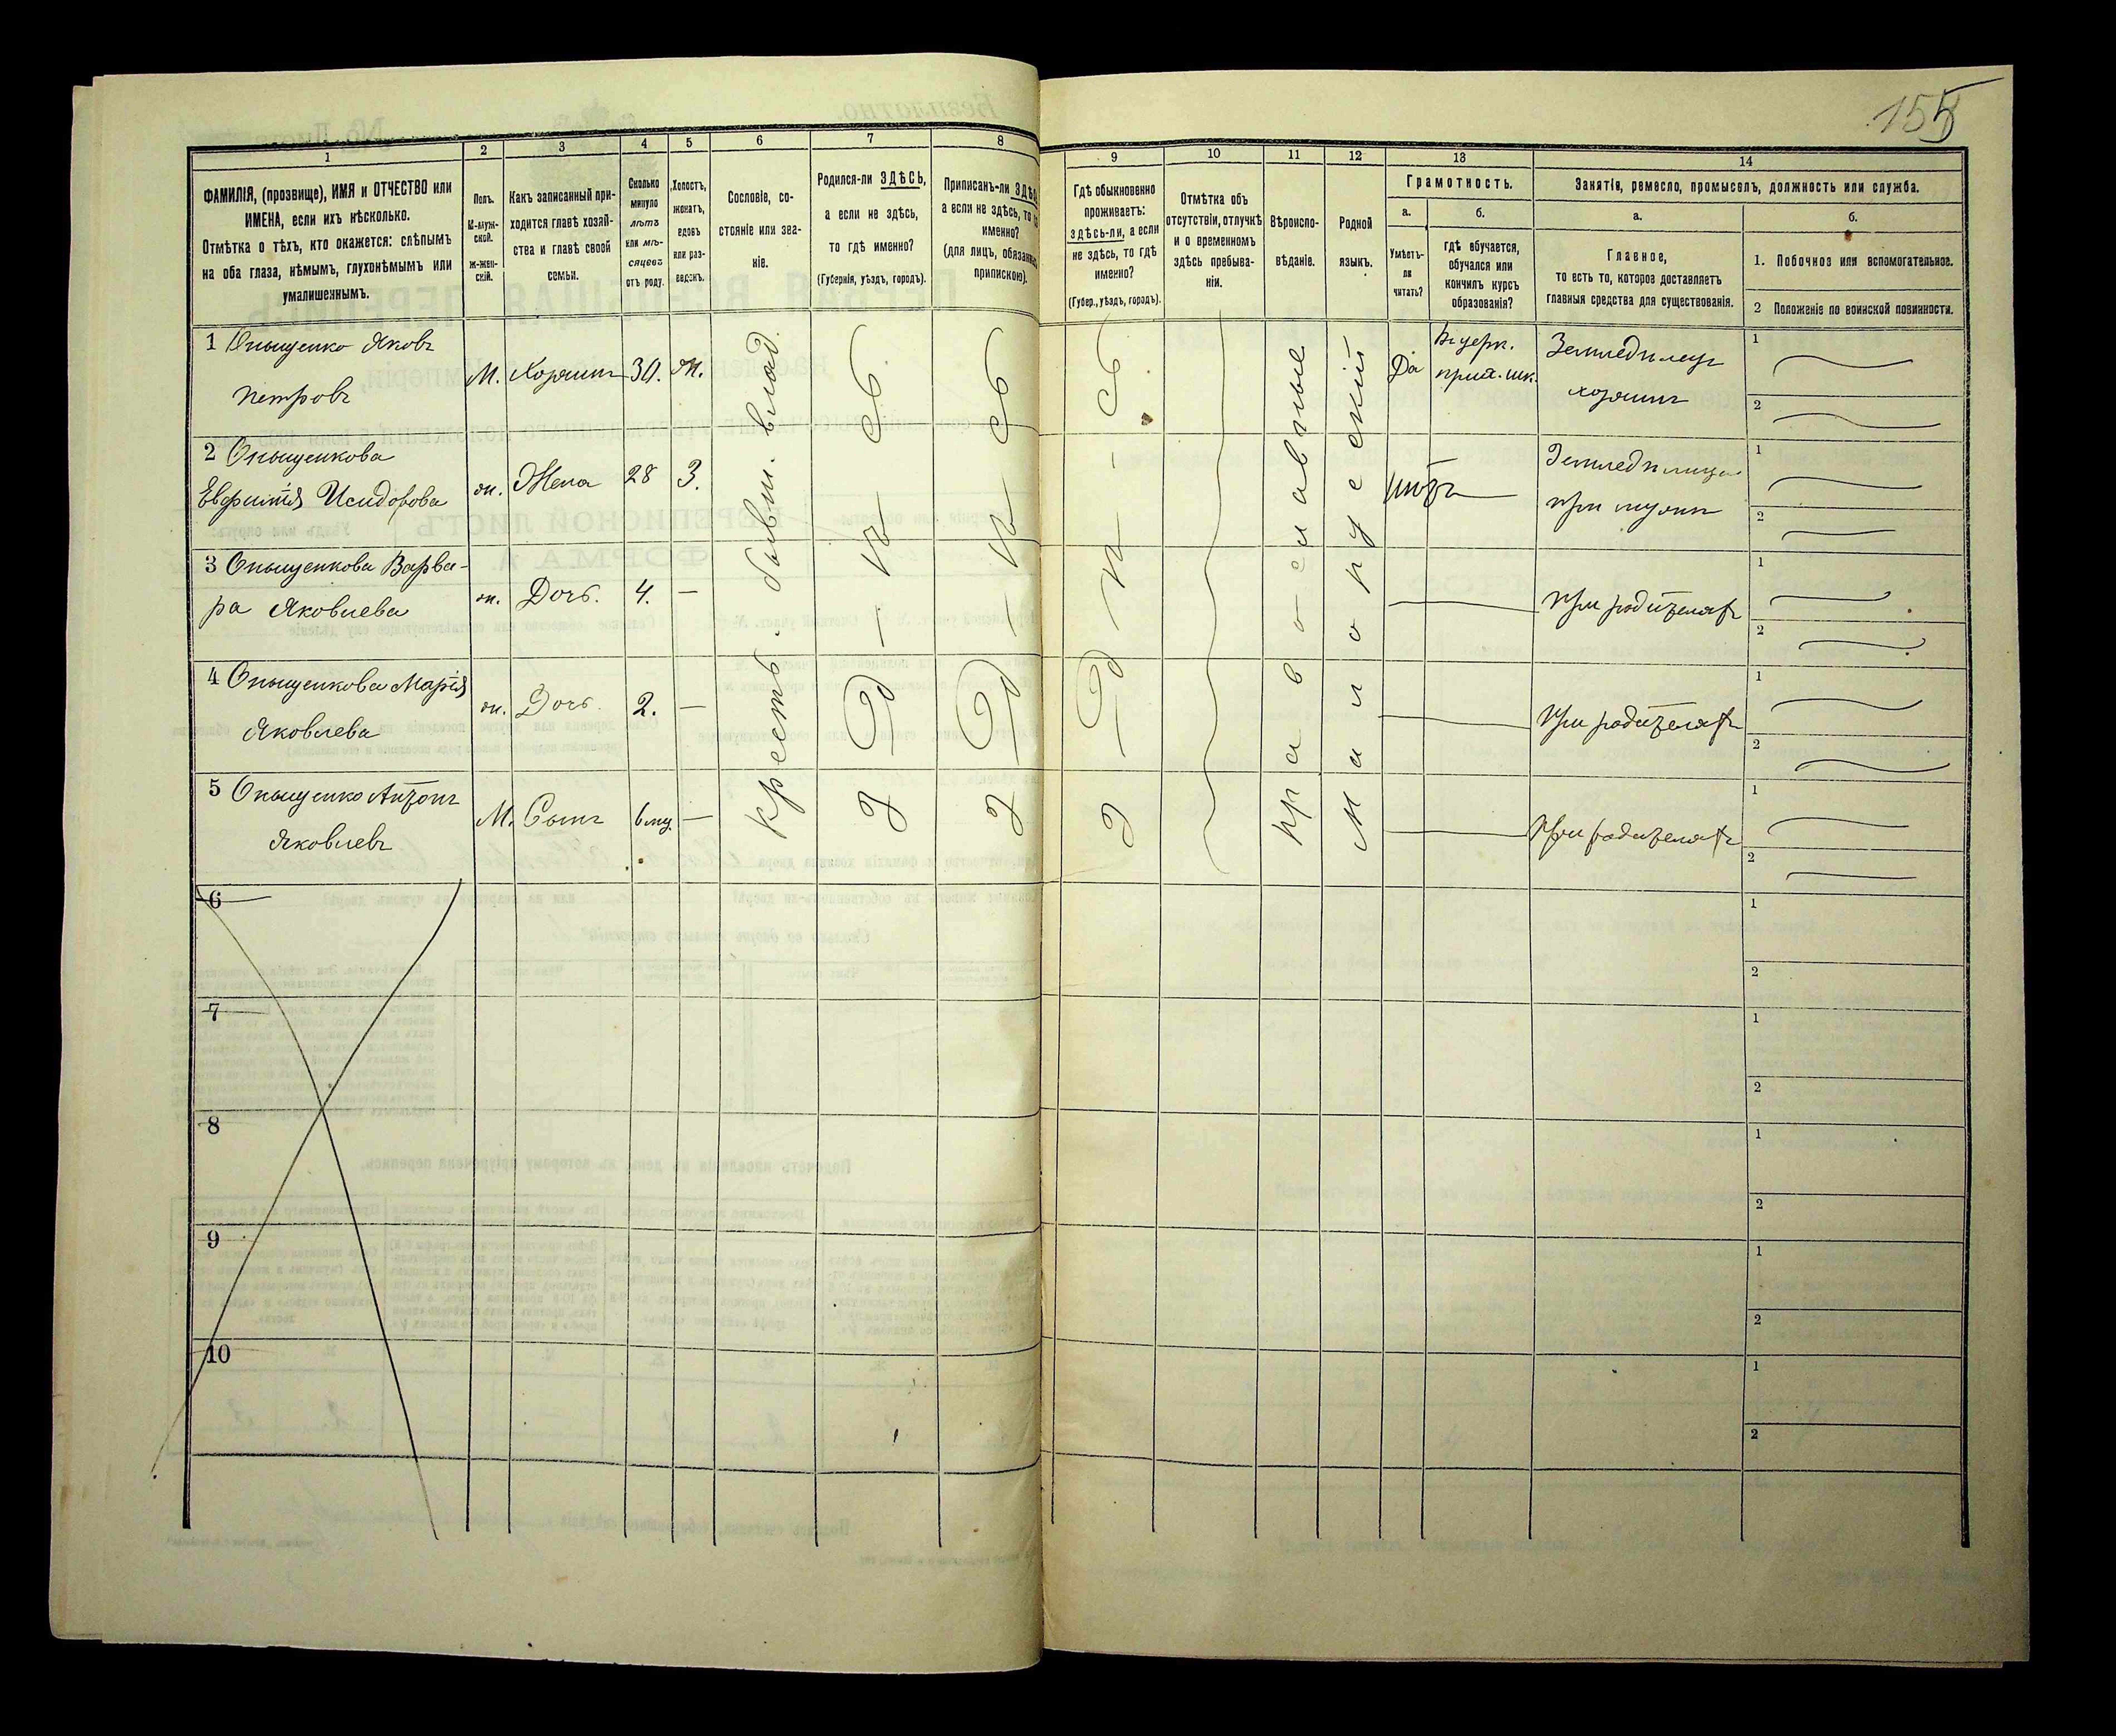 155
1 2 3 4 5 6 7 8 9 10 11 12 13 14
ФАМИЛІЯ, (прозвище), ИМЯ и ОТЧЕСТВО или
ИМЕНА, если ихъ нѣсколько.
Отмѣтка о тѣхъ, кто окажется: слѣпымъ
на оба глаза, нѣмымъ, глухонѣмымъ или
умалишеннымъ.
Полъ.
М-муж-
ской.
Ж-жен-
скій.
Какъ записанный при-
ходится главѣ хозяй-
ства и главѣ своей
семьи.
Сколько
минуло
лѣтъ
или мѣ-
сяцевъ
отъ роду.
Холостъ,
женатъ,
вдовъ
или раз-
веденъ.
Сословіе, со-
стояніе или зва-
ніе.
Родился-ли ЗДѢСЬ,
а если не здѣсь,
то гдѣ именно?
(Губернія, уѣздъ, городъ).
Приписанъ-ли ЗДѢ
а если не здѣсь, то
именно?
(для лицъ, обязан
припискою).
Гдѣ обыкновенно
проживаетъ:
здѣсь-ли, а если
не здѣсь, то гдѣ
именно?
(Губер., уѣздъ, городъ).
Отмѣтка объ
отсутствіи, отлучкѣ
и о временномъ
здѣсь пребыва-
ніи.
Вѣроиспо-
вѣданіе.
Родной
языкъ.
Грамотность.
а.
Умѣетъ-
ли
читать?
б.
гдѣ обучается,
обучался или
кончилъ курсъ
образованія?
Занятіе, ремесло, промыселъ, должность или служба.
а.
Главное,
то есть то, которое доставляетъ
главныя средства для существованія.
б.
1. Побочное или вспомогательное.
2 Положеніе по воинской повинности.
1 Онышенко Яковъ
Петровъ
М. Хозяинъ 30. Ж.
Да
Въ церк.
прих. шк.
Земледѣлецъ
хозяинъ
1
2
2 Онышенкова
Евфимія Исидорова
ж. Жена 28 З.
нѣтъ
Земледѣлица
при мужѣ
1
2
3 Онышенкова Варва-
ра Яковлева
ж. Дочь. 4. —
При родителяхъ
1
2
4 Онышенкова Марія
Яковлева
ж. Дочь. 2. —
При родителяхъ
1
2
5 Онышенко Антонъ
Яковлевъ
М. Сынъ 6 мц. —
При родителяхъ
1
2
Крестьь. бывш. влад.
З-д-ѣ-сь
З-д-ѣ-сь
З-д-ѣ-сь
Православные
Малорусскій
6
1
2
7
1
2
8
1
2
9
1
2
10
1
2